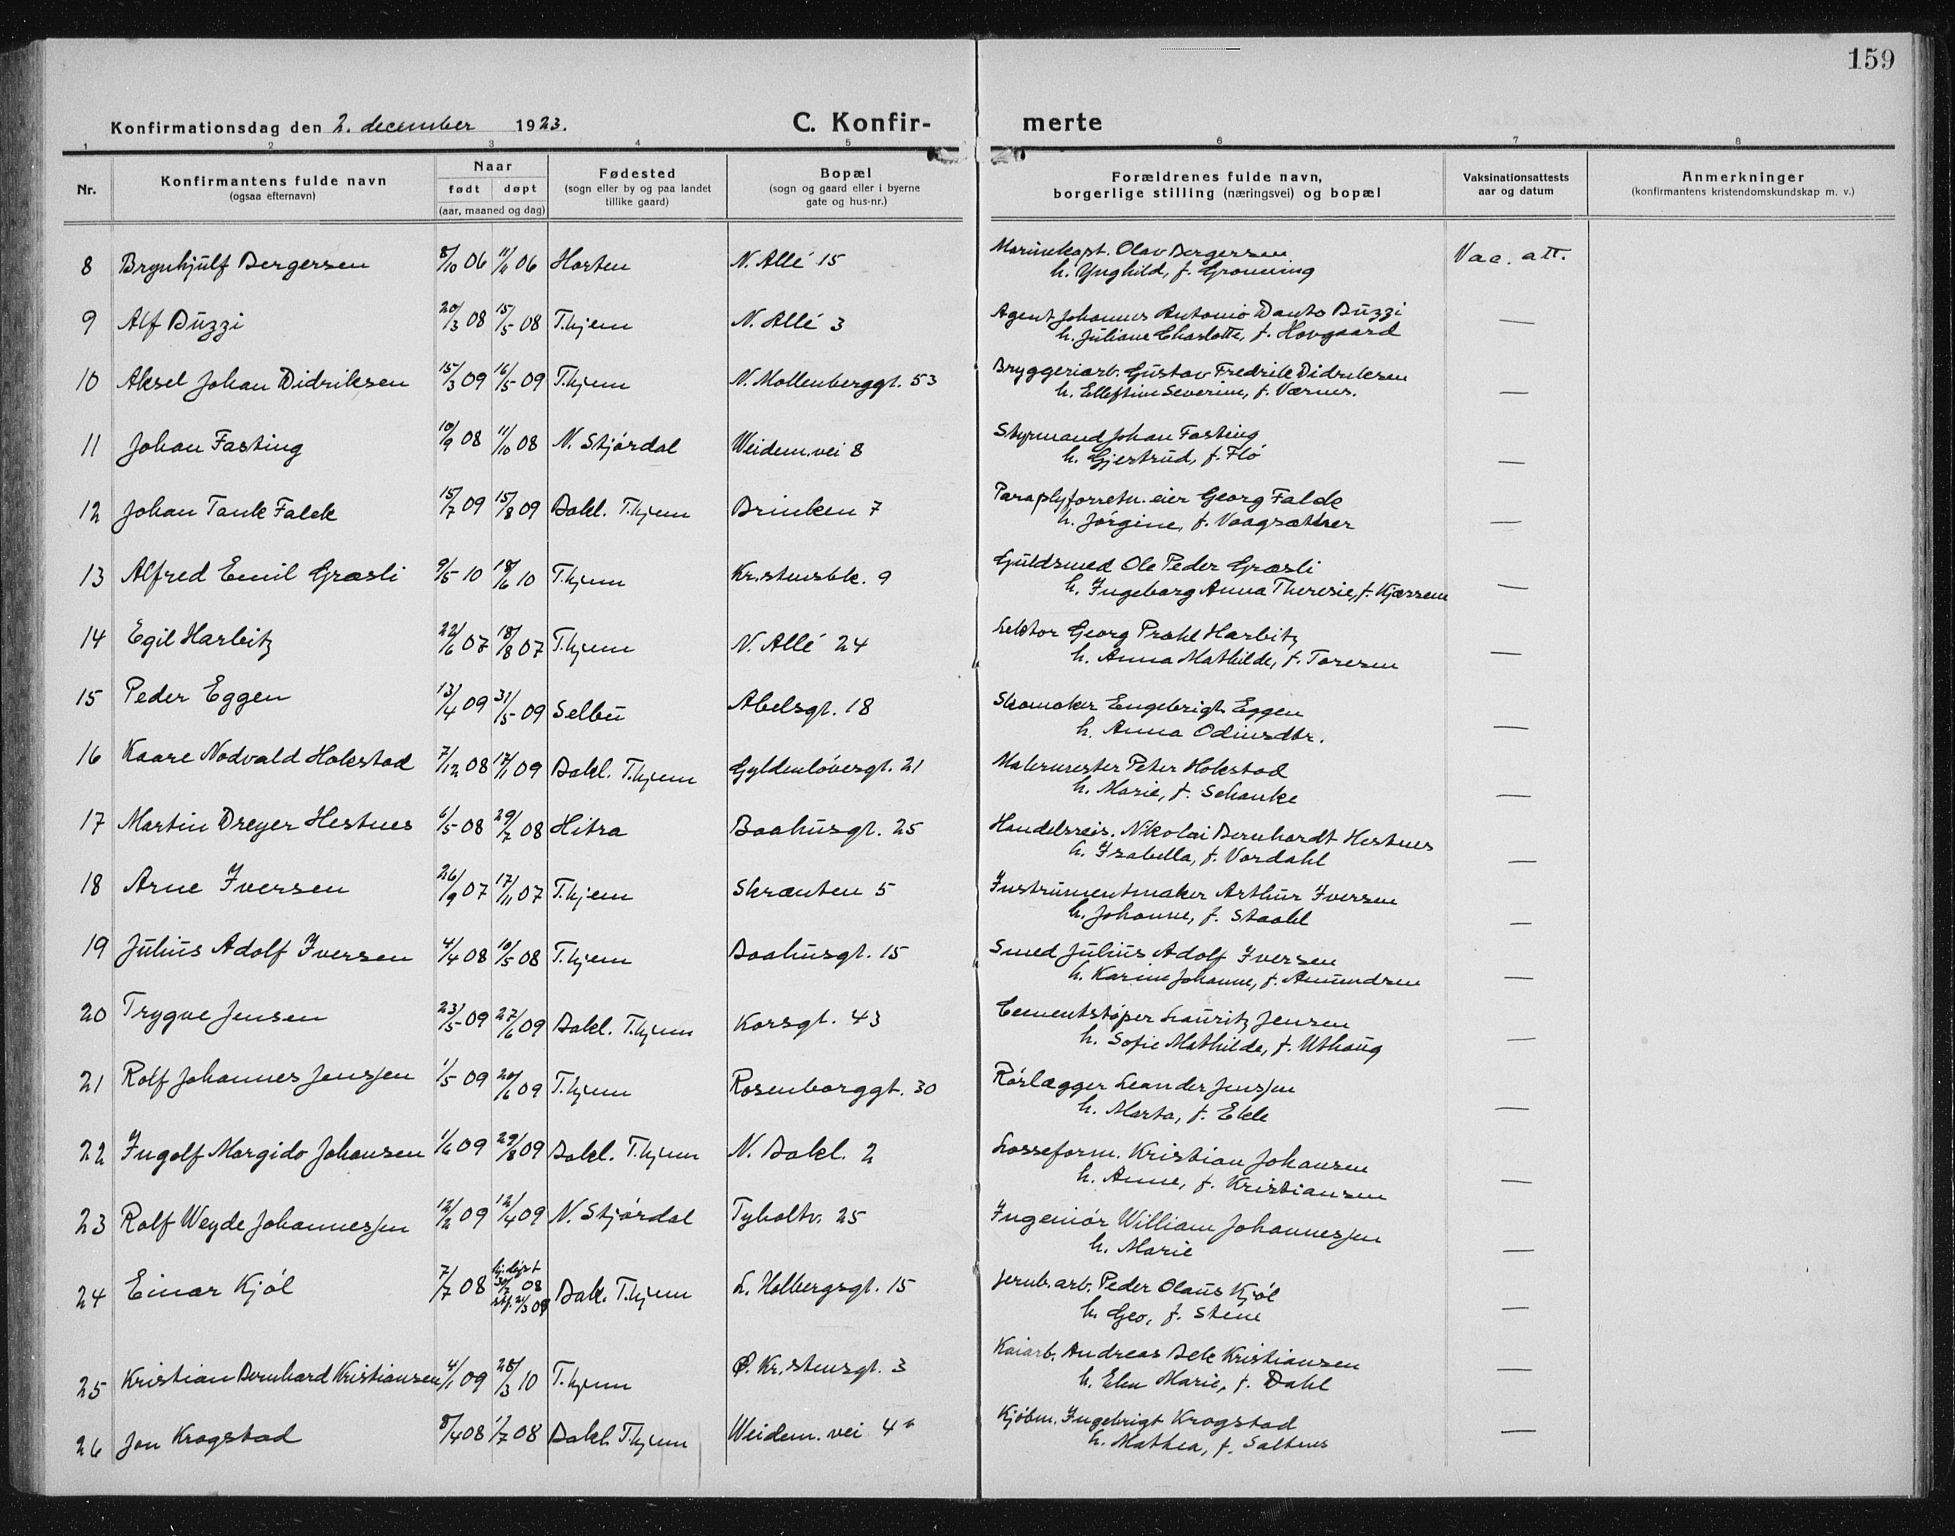 159
Konfirmationsdag den 2. december 1923.
C. Konfirmerte
1 2 3 4 5 6 7 8
Nr. Konfirmantens fulde navn (ogsaa efternavn) Naar født døpt (aar, maaned og dag) Fødested (sogn eller by og paa landet tillike gaard) Bopæl (sogn og gaard eller i byerne gate og hus-nr.) Forældrenes fulde navn, borgerlige stilling (næringsvei) og bopæl Vaksinationsattests aar og datum Anmerkninger (konfirmantens kristendomskundskap m. v.)
8 Brynhjulf Bergersen 8/10 06 11/11 06 Horten N. Allé 15 Marinekapt. Olav Bergersen Vac. att.
h. Ynghild, f. Grønning
9 Alf Buzzi 20/3 08 15/5 08 T.hjem N. Allé 3 Agent Johannes Antonio Danto Buzzi —
h. Juliane Charlotte, f. Hovgaard
10 Aksel Johan Didriksen 15/3 09 16/5 09 T.hjem N. Møllenberggt. 53 Bryggeriarb. Gustav Fredrik Didriksen
h. Ellefine Severine, f. Værnes. —
11 Johan Fasting 10/9 08 11/10 08 N. Stjørdal Weidem.vei 8 Styrmand Johan Fasting
h. Gjertrud, f. Flø —
12 Johan Tank Falck 15/7 09 15/8 09 Bakl. T.hjem Brinken 7 Paraplyforretn. eier Georg Falck
h. Jørgine, f. Vaagsæther —
13 Alfred Emil Græsli 9/5 10 18/6 10 T.hjem Kr.stensbk. 9 Guldsmed Ole Peder Græsli
h. Ingeborg Anna Theresie, f. Kjærrem —
14 Egil Harbitz 22/6 07 18/8 07 T.hjem N. Allé 24 Lektor Georg Prahl Harbitz
h. Anna Mathilde, f. Toresen —
15 Peder Eggen 13/4 09 31/5 09 Selbu Abelsgt. 18 Skomaker Engebrigt Eggen
h. Anna Odinsdtr. —
16 Kaare Nodvald Hokstad 7/12 08 17/1 09 Bakl. T.hjem Gyldenløvesgt. 21 Malermester Peter Hokstad
h. Marie, f. Schanke —
17 Martin Dreyer Hestnes 6/5 08 29/7 08 Hitra Baahusgt. 25 Handelsreis. Nikolai Bernhardt Hestnes
h. Isabella, f. Vordahl —
18 Arne Iversen 26/9 07 17/11 07 T.hjem Skrænten 5 Instrumentmaker Arthur Iversen
h. Johanne, f. Staahl —
19 Julius Adolf Iversen 4/4 08 10/5 08 T.hjem Baahusgt. 15 Smed Julius Adolf Iversen
h. Karine Johanne, f. Amundsen —
20 Trygve Jensen 23/5 09 27/6 09 Bakl. T.hjem Korsgt. 43 Cementstøper Lauritz Jensen
h. Sofie Mathilde, f. Uthaug —
21 Rolf Johannes Jenssen 1/5 09 20/6 09 T.hjem Rosenborggt. 30 Rørlægger Leander Jenssen
h. Marta, f. Ekle —
22 Ingolf Margido Johansen 1/6 09 29/8 09 Bakl. T.hjem N. Bakl. 2 Losseform. Kristian Johansen
h. Anne, f. Kristiansen —
23 Rolf Weyde Johannessen 12/2 09 12/4 09 N. Stjørdal Tyholtv. 25 Ingeniør William Johannessen
h. Marie —
24 Einar Kjøl 7/7 08 hj.døpt 30/7 08 stf. 21/3 09 Bakl. T.hjem L. Holbergsgt. 15 Jernb. arb. Peder Olaus Kjøl
h. Geo, f. Stene —
25 Kristian Bernhard Kristiansen 4/1 09 28/3 10 T.hjem Ø. Kr.stensgt. 3 Kaiarb. Andreas Kristiansen
h. Elen Marie, f. Dahl —
26 Jon Krogstad 8/4 08 1/7 08 Bakl. T.hjem Weidem. vei 4a Kjøbm. Ingebrigt Krogstad
h. Mathea, f. Saltnes —